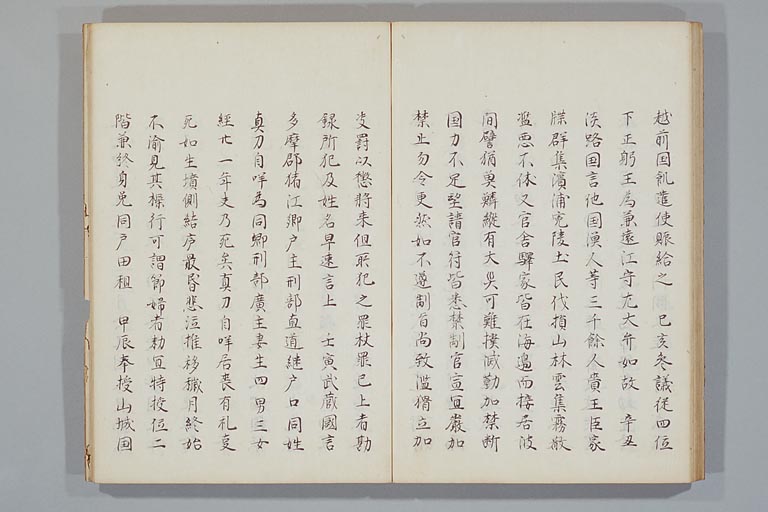 越前国飢遣使賑給之　己亥冬議従四位
下正躬王為兼遠江守左大弁如故　辛丑
淡路国言他国漁人等三千餘人賚王臣家
牒群集濱浦冤陵土民伐損山林雲集霧散
濫悪不休又官舎驛家皆在海邊而接居彼
間譬猶奥難縦有大災可難撲滅勤加禁断
国力不足望請官符皆悉禁制官宣宜厳加
禁止勿令更然如不遵制旨尚致濫猾立加
决罸以懲将来但所犯之罪杖罪已上者勘
録所犯及姓名早速言上　壬寅武蔵國言
多摩郡猪江郷戸主刑部直道継戸口同姓
真刀自咩為同郷刑部廣主妻生四男三女
経廿一年夫乃死矣真刀自咩居喪有礼夏
死如生墳側結庐晨昏悲泣推移機月終始
不渝見其操行可謂節婦者勅宜特授位二
階兼終身免同戸田租　甲辰奉授山城国